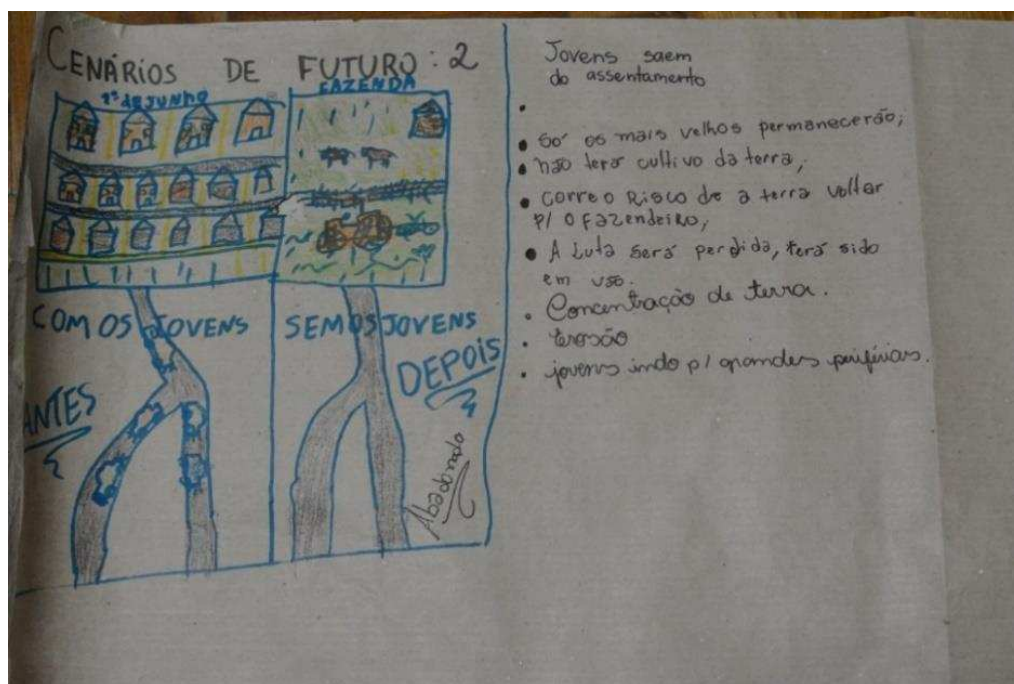 CENÁRIOS DE FUTURO: 2
1º de JUNHO
FAZENDA
COM OS JOVENS
SEM OS JOVENS
ANTES
DEPOIS
Abadonado
Jovens saem
do assentamento
•
• Só os mais velhos permanecerão;
• não terá cultivo da terra;
• corre o Risco de a terra voltar
p/ o Fazendeiro;
• A Luta será perdida, terá sido
em vão.
• Concentração de terra.
• erosão
• jovens indo p/ grandes periférias.